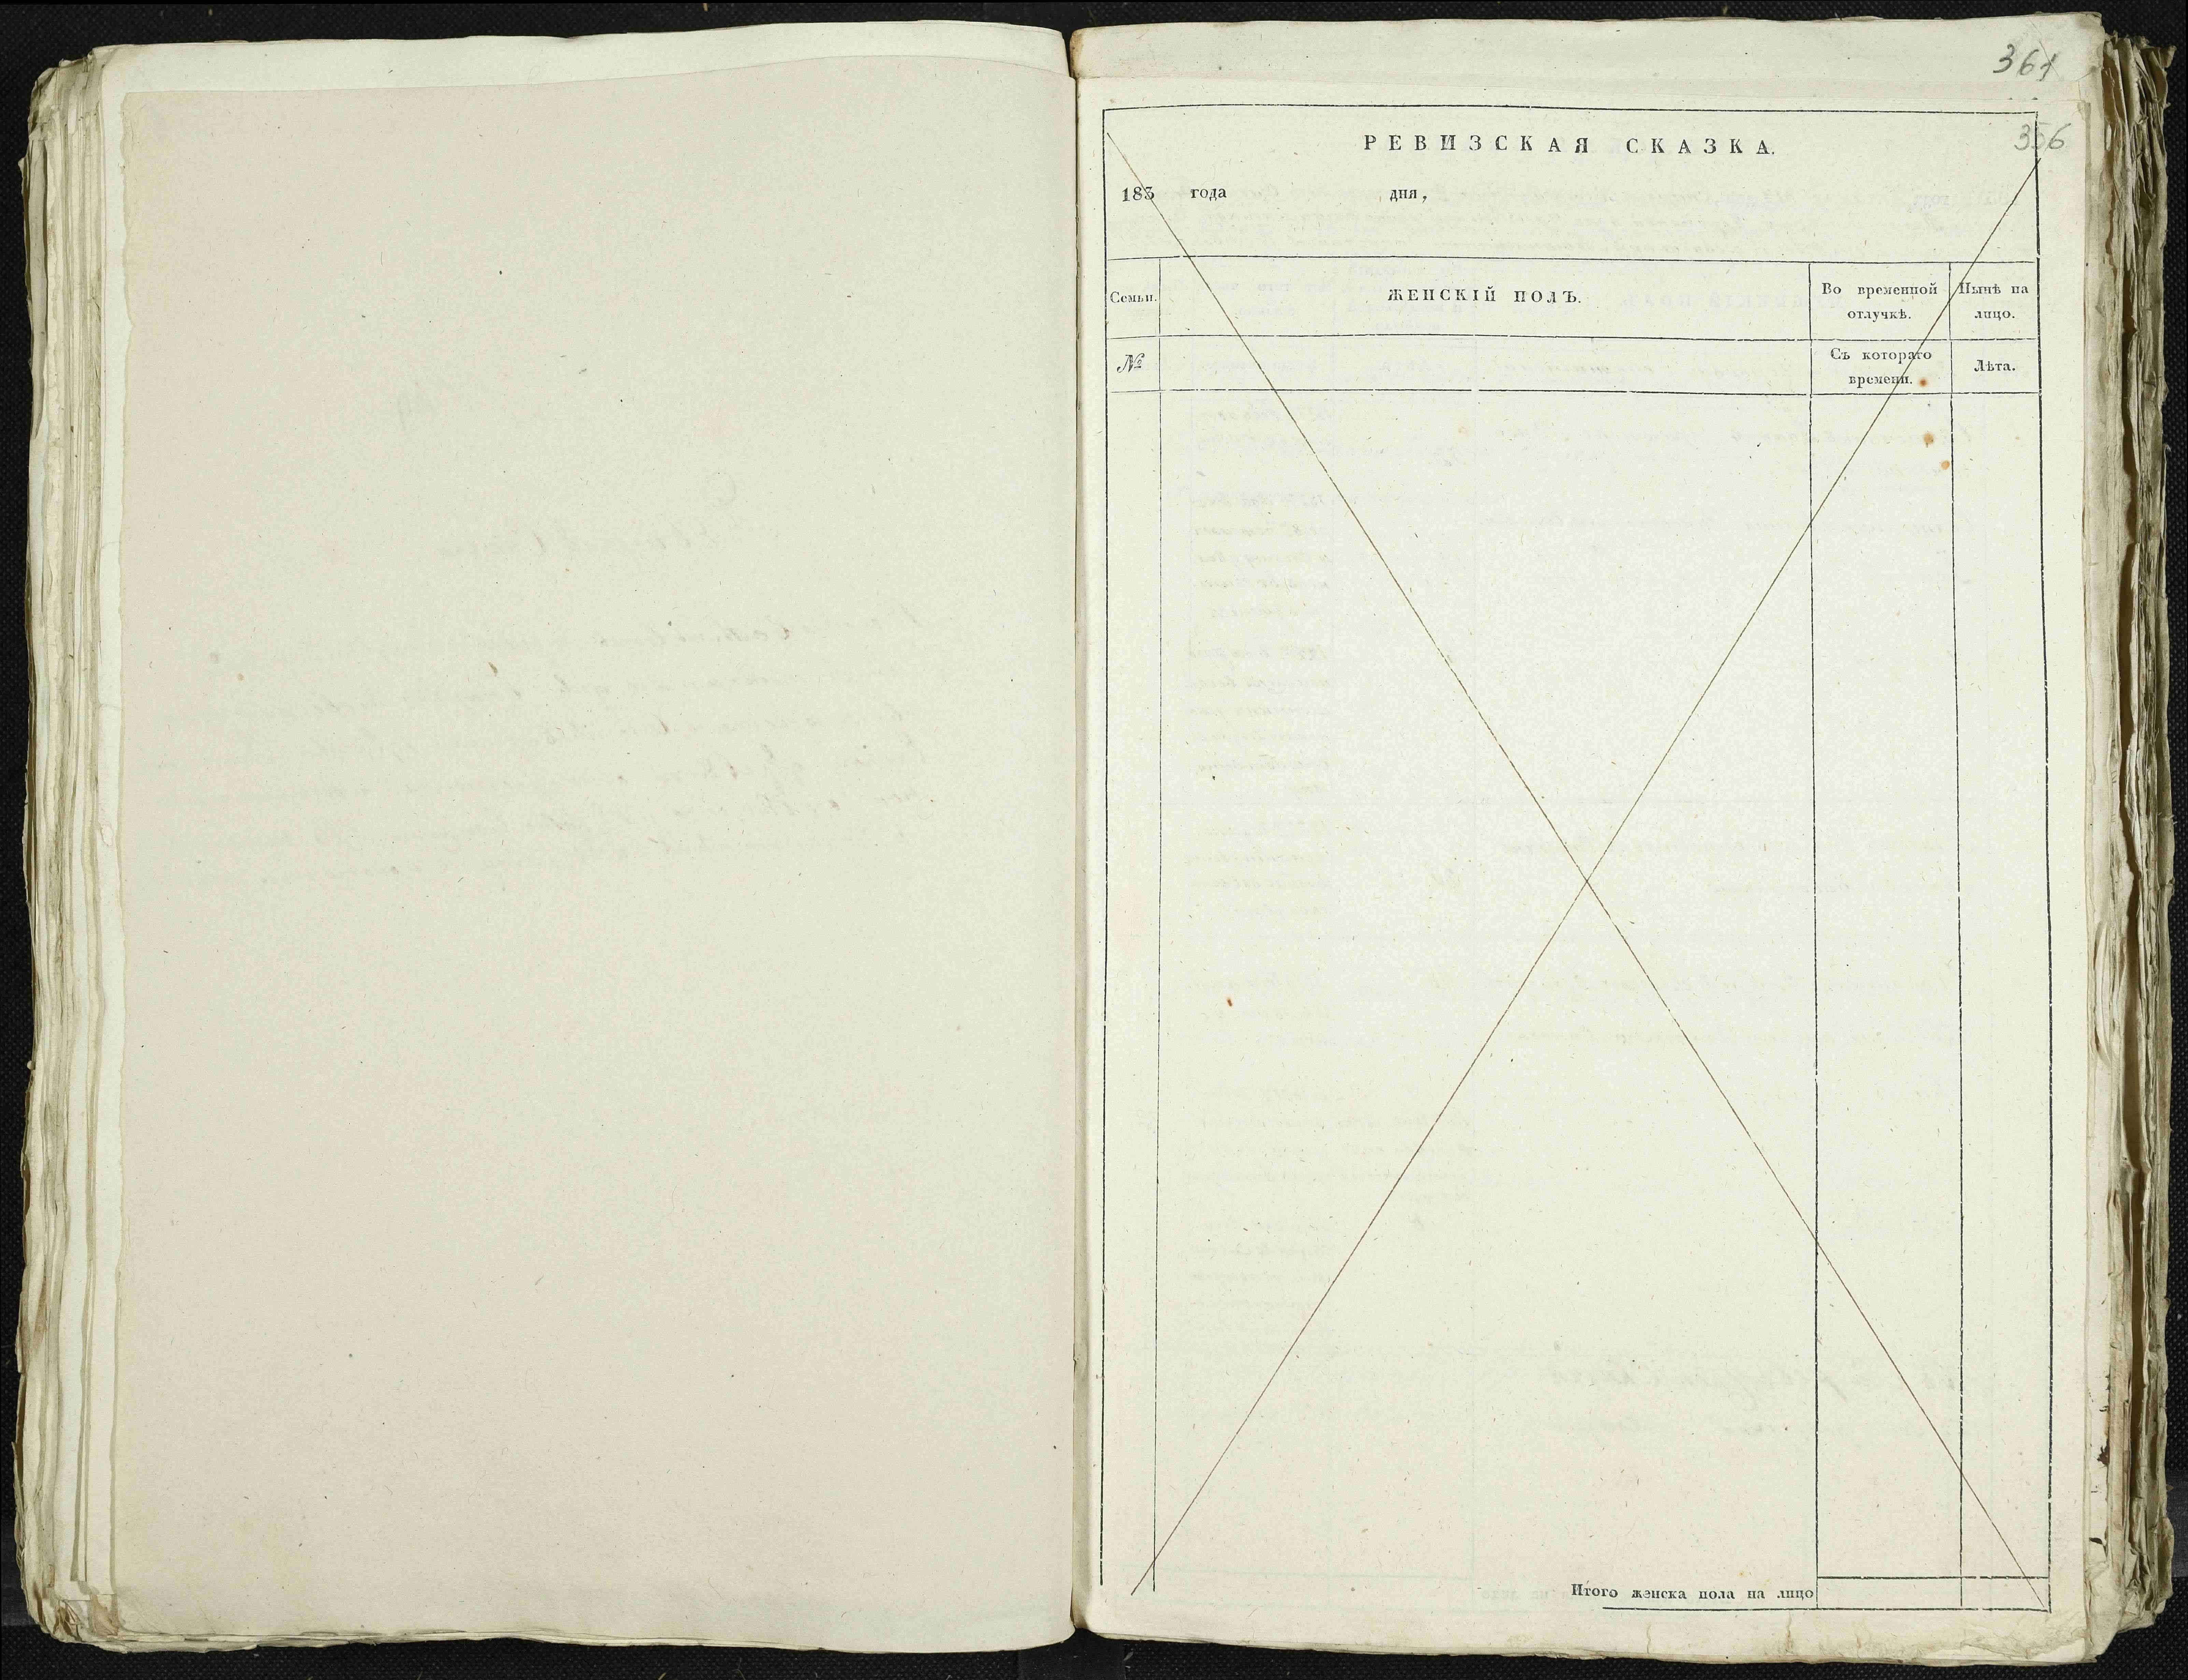 361
356
РЕВИЗСКАЯ СКАЗКА.
183 года дня,
Семьи.
ЖЕНСКІЙ ПОЛЪ.
Во временной
отлучкѣ.
Нынѣ на
лицо.
№
Съ котораго
времени.
Лѣта.
Итого женска пола на лицо